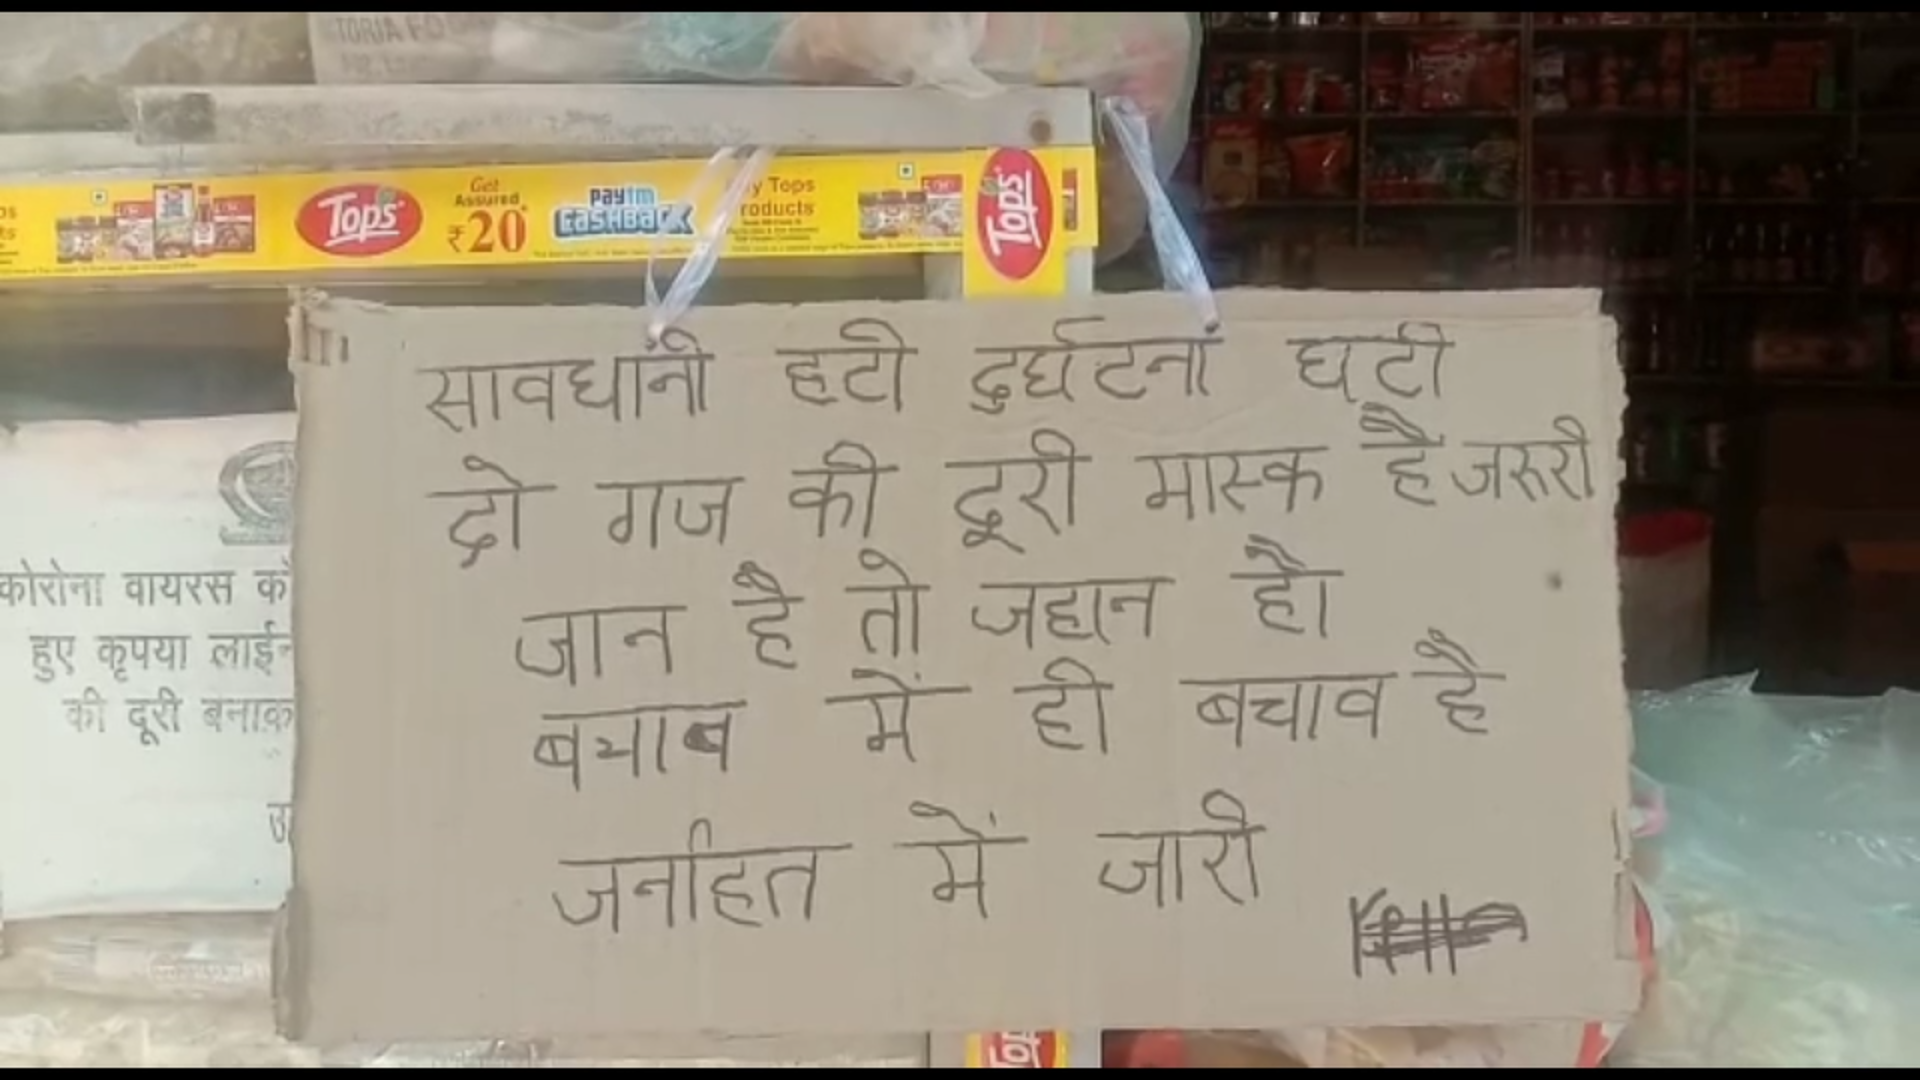 TORIA FO
Tops
Get
Assured
₹20
paytm
CASHBACK
Tops
roducts
Tops
सावधानी हटी दुर्घटना घटी
दो गज की दूरी मास्क है जरुरी
जान है तो जहान है।
बचाव में ही बचाव है
जनहित में जारी
कोरोना वायरस के
हुए कृपया लाईन
की दूरी बनाक